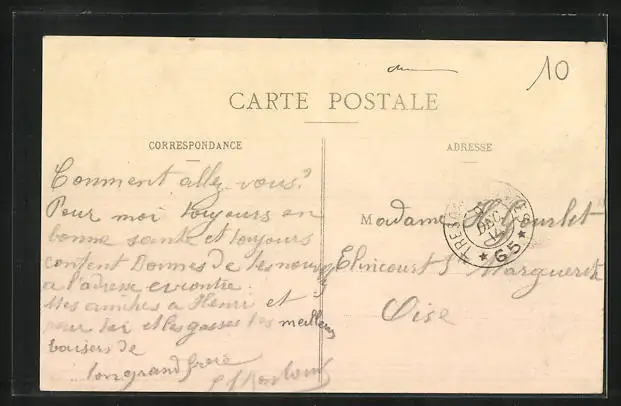 10
CARTE POSTALE
CORRESPONDANCE
ADRESSE
Comment allez-vous?
Pour moi toujours en
bonne sante et toujours
content Donnes de tes nouv
a l'adresse ci contre.
Mes amities a Henri et
pour toi et les gosses les meilleurs
baisers de
ton grand frere
Madame
Elincourt S Marguerite
Oise
TRESOR POSTES
DEC
14
* 65 *